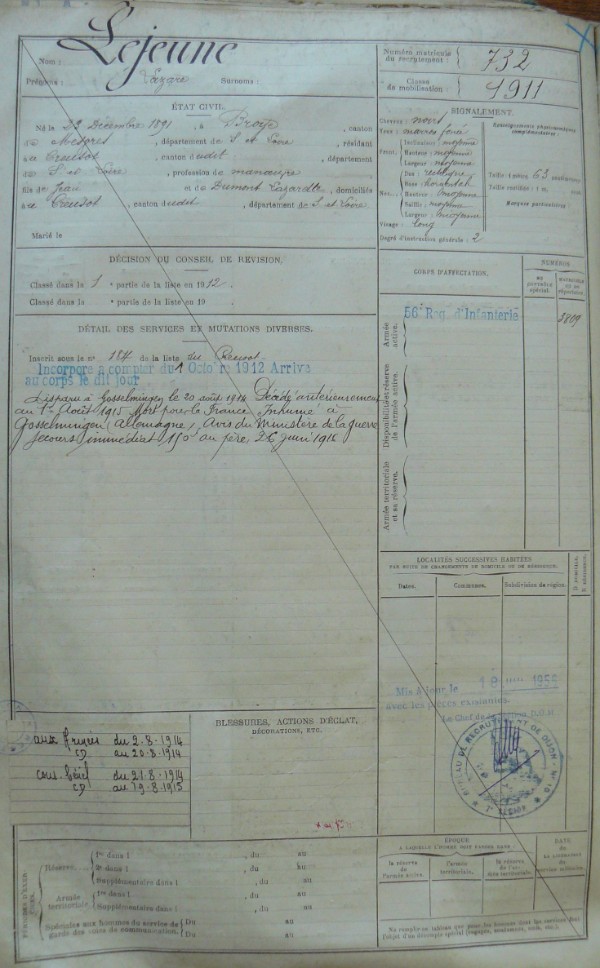 Lejeune
Nom :
Prénoms : Lazare Surnoms :
Numéro matricule du recrutement : 732
Classe de mobilisation : 1911
ÉTAT CIVIL.
Né le 23 Décembre 1891, à Broye, canton
de Mesvres, département de S et Loire, résidant
à Creusot, canton dudit, département
de S. et Loire, profession de manœuvre
fils de Jean et de Dumont Lazarette, domiciliés
à Creusot, canton dudit, département de S. et Loire
Marié le
SIGNALEMENT.
Cheveux : noirs
Yeux : marrons foncé
Front. Inclinaison : moyenne
Hauteur : moyenne
Largeur : moyenne
Nez. Dos : rectiligne
Base : horizontale
Hauteur : moyenne
Saillie : moyenne
Largeur : moyenne
Visage : long
Renseignements physionomiques complémentaires :
Taille : 1 mètre 63 centimètres
Taille rectifiée : 1 m. cent.
Marques particulières :
Degré d'instruction générale : 2
DÉCISION DU CONSEIL DE REVISION.
Classé dans la 1 e partie de la liste en 1912.
Classé dans la e partie de la liste en 19 .
DÉTAIL DES SERVICES ET MUTATIONS DIVERSES.
Inscrit sous le n° 184 de la liste du Creusot.
Incorporé à compter du 1 Octobre 1912 Arrivé
au corps le dit jour
Disparu à Gosselmingen le 20 août 1914 Décédé antérieurement
au 1er Août 1915 Mort pour la France Inhumé à
Gosselmingen (Allemagne) Avis du Ministère de la guerre
Secours immédiat 150f au père, 26 juin 1916
CORPS D'AFFECTATION.
NUMÉROS
au contrôle spécial.
Armée active.
56e Rég. d'Infanterie
5809
Disponibilité et réserve de l'armée active.
Armée territoriale et sa réserve.
LOCALITÉS SUCCESSIVES HABITÉES
PAR SUITE DE CHANGEMENTS DE DOMICILE OU DE RÉSIDENCE.
Dates.
Communes.
Subdivision de région.
D. domicile. R. résidence.
Mis à Jour le
avec les pièces existantes.
BUREAU DE RECRUTEMENT DE DIJON
BLESSURES, ACTIONS D'ÉCLAT,
DÉCORATIONS, ETC.
aux Armées du 2-8-1914
CD au 20-8-1914
du 21-8-1914
CD au 19-8-1915
PÉRIODES D'EXERCICES
Réserve. 1re dans l , du au
2e dans l , du au
Supplémentaire dans l , du au
Armée territoriale. 1re dans l , du au
Supplémentaire dans l , du au
Spéciales aux hommes du service de garde des voies de communication. Du au
Du au
ÉPOQUE
À LAQUELLE L'HOMME DOIT PASSER DANS :
la réserve de l'armée active.
l'armée territoriale.
la réserve de l'armée territoriale.
DATE
de la libération du service militaire.